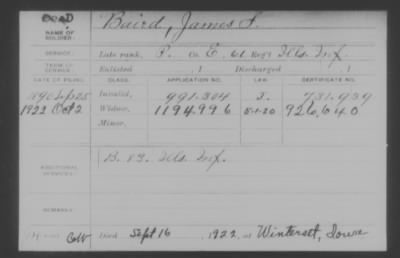 DEAD
NAME OF SOLDIER: Baird, James F.
SERVICE: Late rank, P. Co. E, 61 Reg't Ills. Inf.
TERM OF SERVICE: Enlisted , 1 Discharged , 1
DATE OF FILING. CLASS. APPLICATION NO. LAW. CERTIFICATE NO.
Sep 25 Invalid, 991.304 J. 731.939
1922 Oct 2 Widow, 1194996 5-1-20 926,640
Minor,
ADDITIONAL SERVICES: B. 83. Ills. Inf.
REMARKS:
CW Died Sept 16 , 1922, at Winterset, Iowa